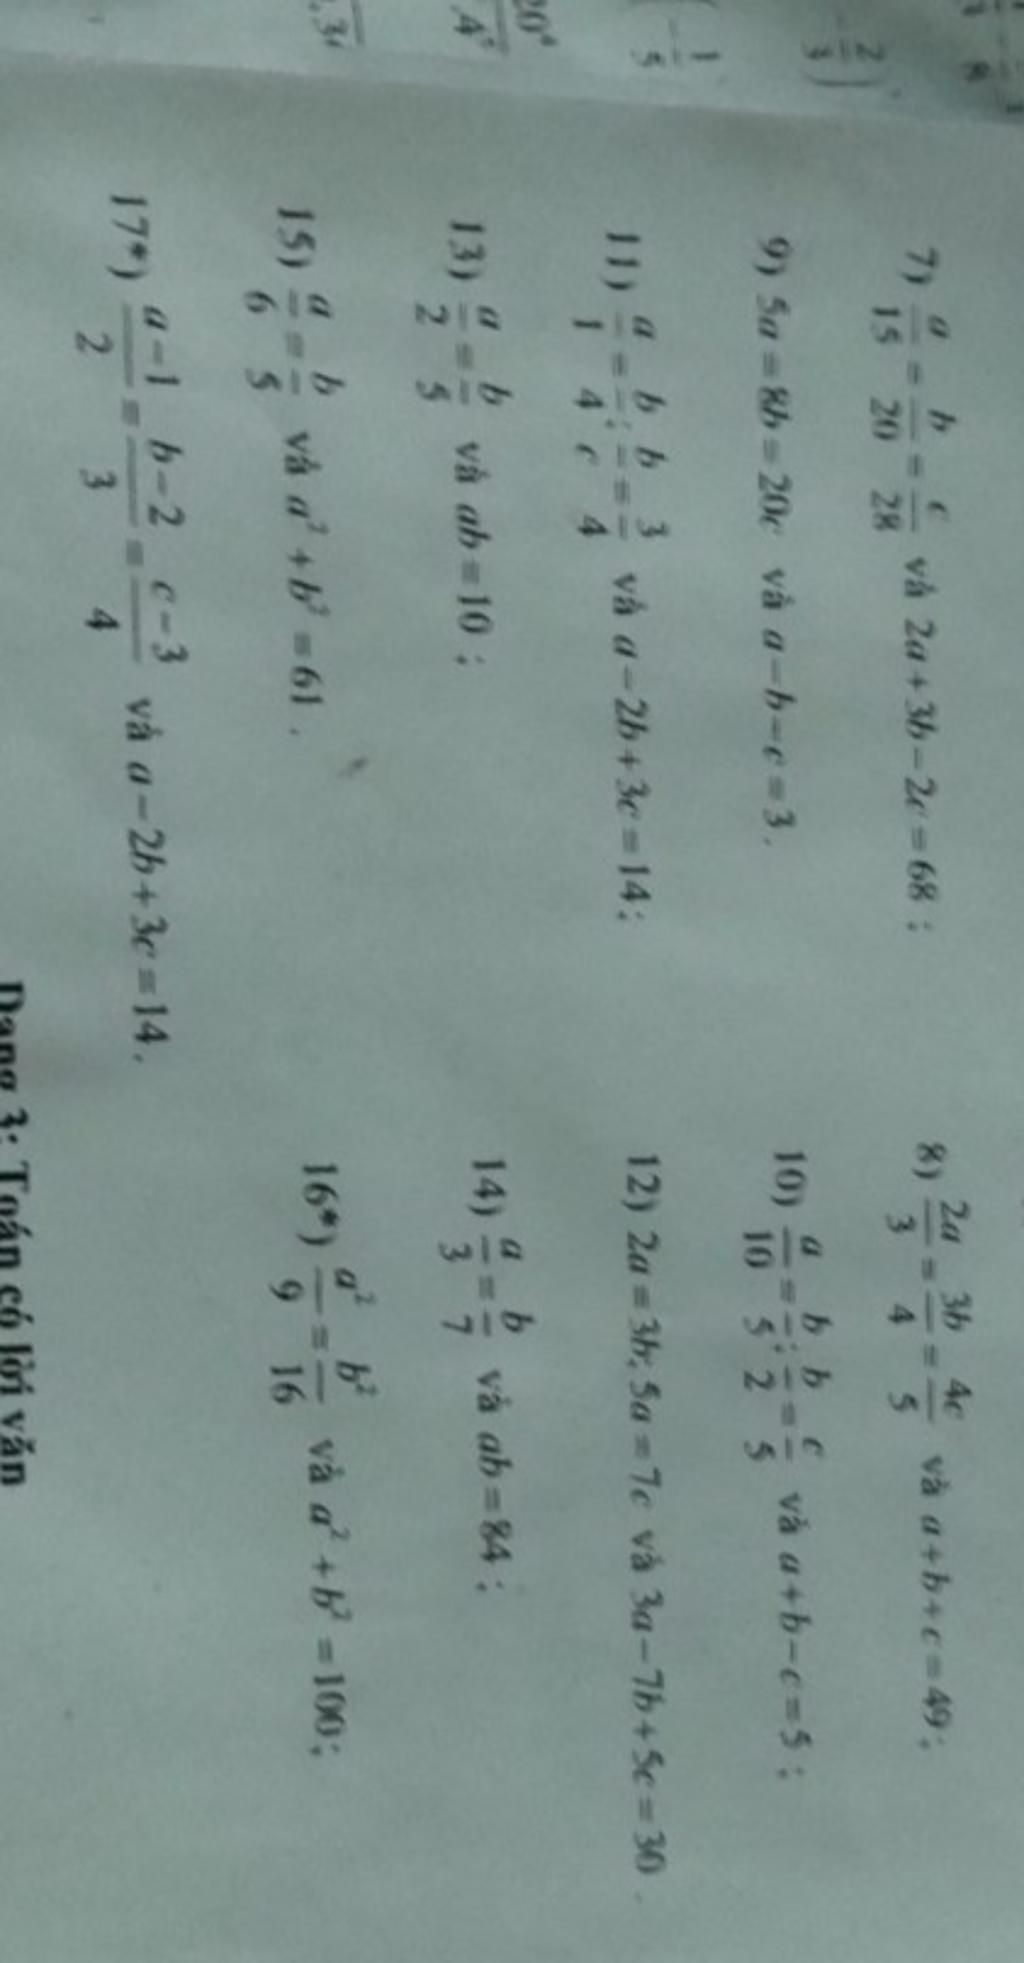 7) a/15 = b/20 = c/28 và 2a+3b−2c=68 ;
8) 2a/3 = 3b/4 = 4c/5 và a+b+c=49 ;
9) 5a=8b=20c và a−b−c=3.
10) a/10 = b/5 ; b/2 = c/5 và a+b−c=5 ;
11) a/1 = b/4 ; b/c = 3/4 và a−2b+3c=14 ;
12) 2a=3b; 5a=7c và 3a−7b+5c=30.
13) a/2 = b/5 và ab=10 ;
14) a/3 = b/7 và ab=84 ;
15) a/6 = b/5 và a²+b²=61.
16*) a²/9 = b²/16 và a²+b²=100 ;
17*) a−1/2 = b−2/3 = c−3/4 và a−2b+3c=14.
Dạng 3: Toán có lời văn